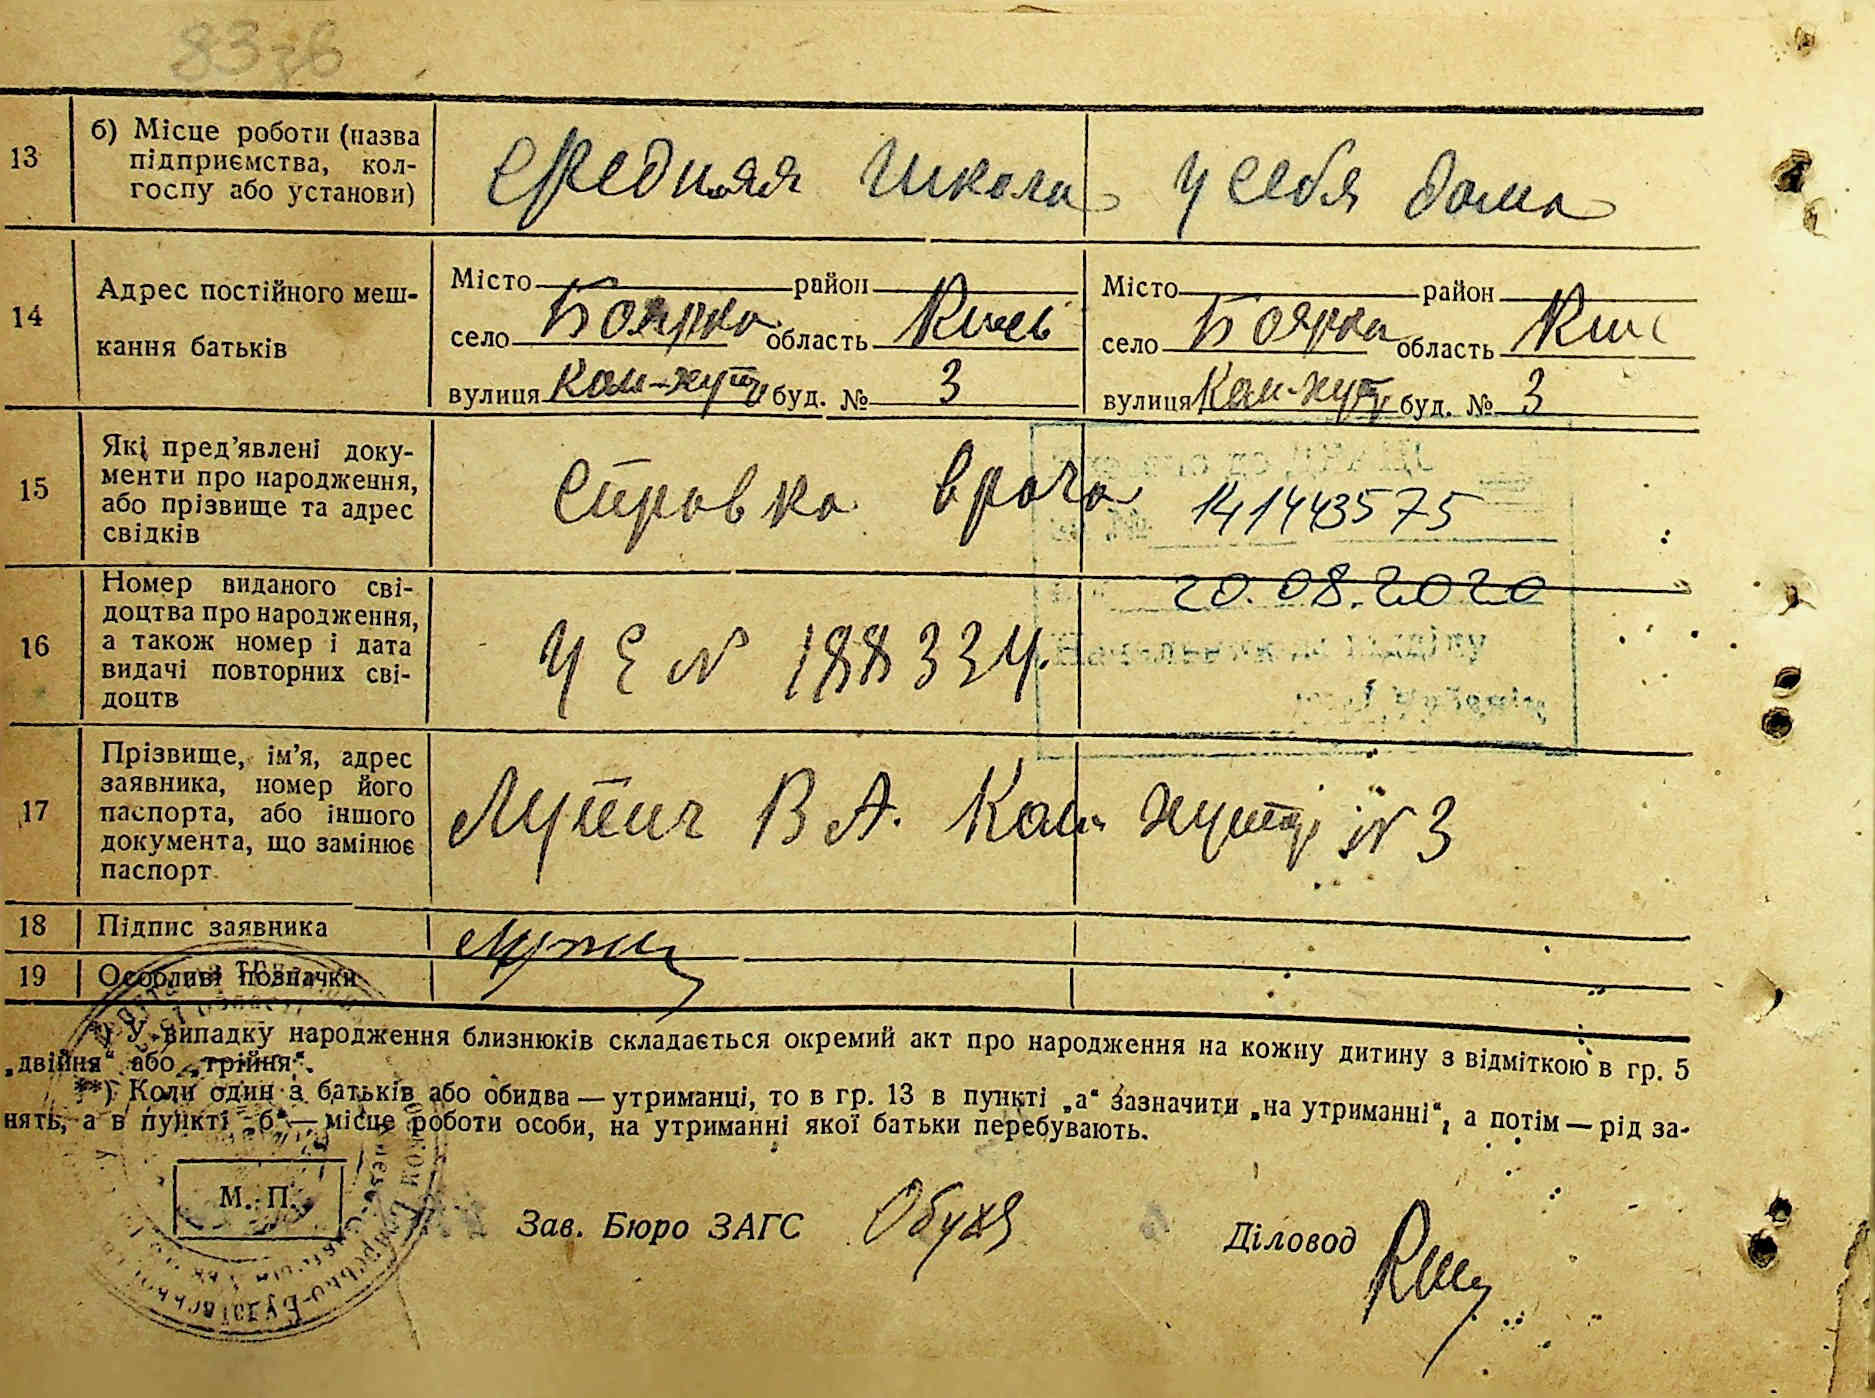 83зв
13
б) Місце роботи (назва
підприємства, кол-
госпу або установи)
Средняя школа
у себя дома
14
Адрес постійного меш-
кання батьків
Місто район
село Боярка область Киев
вулиця буд. № 3
Місто район
село Боярка область
вулиця буд. № 3
15
Які пред'явлені доку-
менти про народження,
або прізвище та адрес
свідків
Справка врача
141443575
20.08.2020
16
Номер виданого сві-
доцтва про народження,
а також номер і дата
видачі повторних сві-
доцтв
УЕ N 188334
17
Прізвище, ім'я, адрес
заявника, номер його
паспорта, або іншого
документа, що замінює
паспорт
В А. N 3
18
Підпис заявника
19
Особливі позначки
*) У випадку народження близнюків складається окремий акт про народження на кожну дитину з відміткою в гр. 5
„двійня“ або „трійня“.
**) Коли один з батьків або обидва — утриманці, то в гр. 13 в пункті „а“ зазначити „на утриманні“, а потім — рід за-
нять, а в пункті „б“ — місце роботи особи, на утриманні якої батьки перебувають.
М. П.
Зав. Бюро ЗАГС
Діловод